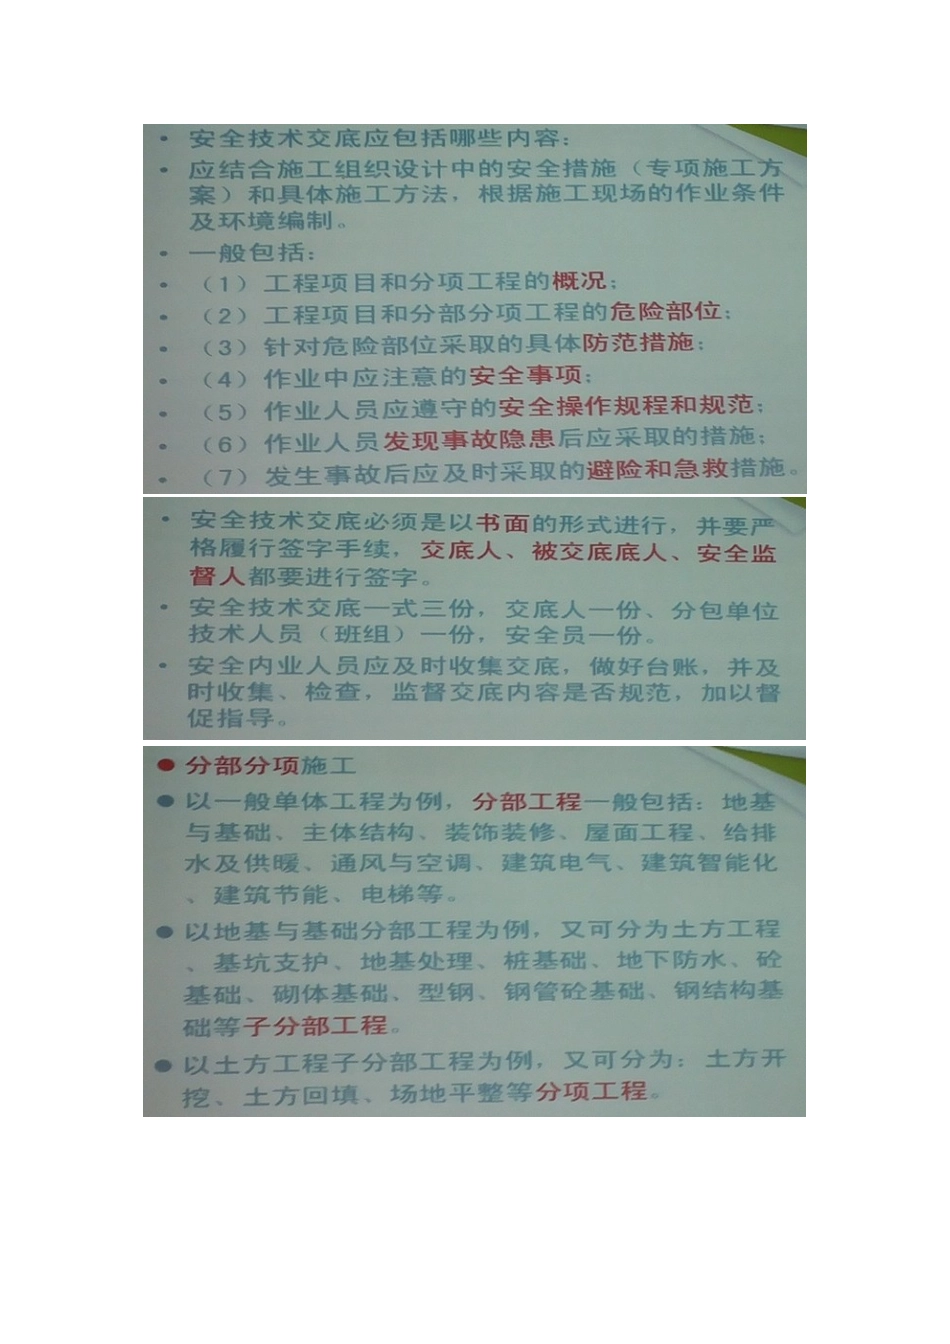 • 安全技术交底应包括哪些内容：
• 应结合施工组织设计中的安全措施（专项施工方
案）和具体施工方法，根据施工现场的作业条件
及环境编制。
• 一般包括：
• （1）工程项目和分项工程的概况；
• （2）工程项目和分部分项工程的危险部位；
• （3）针对危险部位采取的具体防范措施；
• （4）作业中应注意的安全事项；
• （5）作业人员应遵守的安全操作规程和规范；
• （6）作业人员发现事故隐患后应采取的措施；
• （7）发生事故后应及时采取的避险和急救措施。
• 安全技术交底必须是以书面的形式进行，并要严
格履行签字手续，交底人、被交底底人、安全监
督人都要进行签字。
• 安全技术交底一式三份，交底人一份、分包单位
技术人员（班组）一份，安全员一份。
• 安全内业人员应及时收集交底，做好台账，并及
时收集、检查，监督交底内容是否规范，加以督
促指导。
● 分部分项施工
● 以一般单体工程为例，分部工程一般包括：地基
与基础、主体结构、装饰装修、屋面工程、给排
水及供暖、通风与空调、建筑电气、建筑智能化
、建筑节能、电梯等。
● 以地基与基础分部工程为例，又可分为土方工程
、基坑支护、地基处理、桩基础、地下防水、砼
基础、砌体基础、型钢、钢管砼基础、钢结构基
础等子分部工程。
● 以土方工程子分部工程为例，又可分为：土方开
挖、土方回填、场地平整等分项工程。